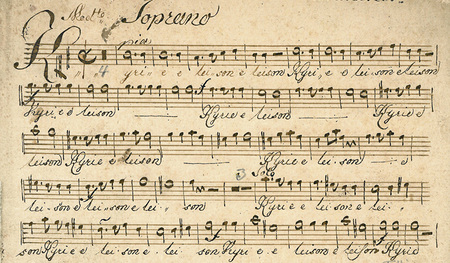 Soprano
Kyri e e lei son eleison Kyri e e lei son eleison
Kyri e e leison Kyrie eleison Kyrie e
leison Kyrie eleison Kyrie e lei son e
lei son eleison e lei son Kyrie eleison e lei
son Kyrie e lei son e lei son Kyri e e leison eleison Kyrie